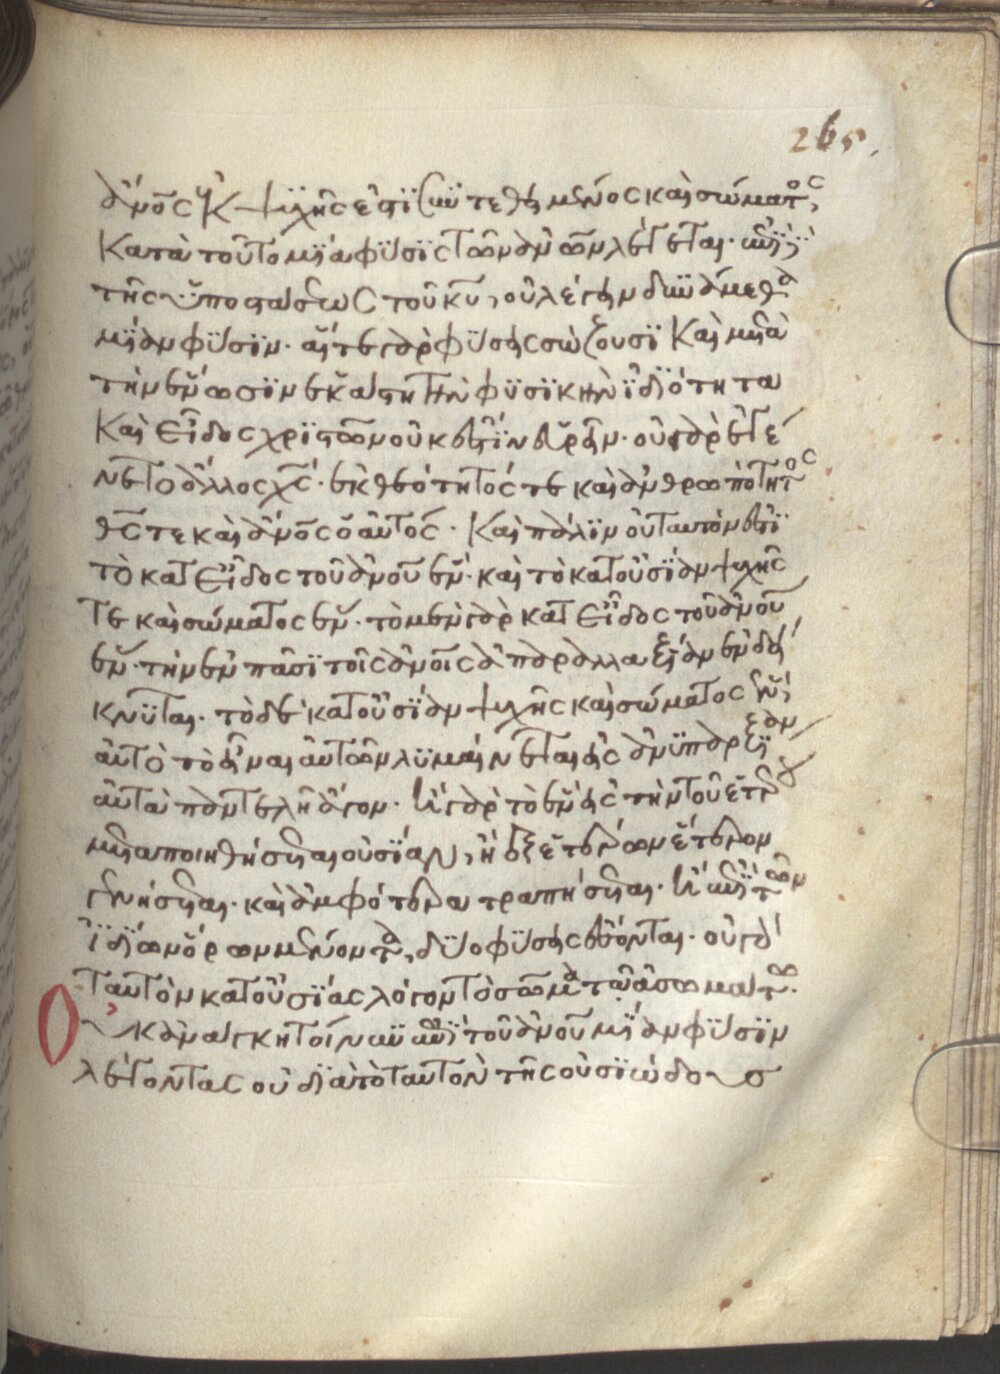 265.
ἄνος ἐκ ψυχῆς ἐστι συντεθειμένος καὶ σώματος,
κατὰ τοῦτο μία φύσις τῶν ἀνων λέγεται. ἐπὶ
τῆς ὑποστάσεως τοῦ κυ, οὐ λέγειν δυνάμεθα
μίαν φύσιν. αἵ τε γὰρ φύσεις σώζουσι καὶ μετὰ
τὴν ἕνωσιν ἑκάστη τὴν φυσικὴν ἰδιότητα
καὶ εἶδος χριστῶν οὐκ ἔστιν εὑρεῖν. οὐ γὰρ ἐγέ
νετο ἄλλος χς ἐκ θεότητός τε καὶ ἀνθρωπότητος
θς τε καὶ ἄνος ὁ αὐτός. καὶ πάλιν οὐ ταυτόν ἐστι
τὸ κατ εἶδος τοῦ ἀνου ἕν. καὶ τὸ κατ οὐσίαν ψυχῆς
τε καὶ σώματος ἕν. τὸ μὲν γὰρ κατ εἶδος τοῦ ἀνου
ἕν. τὴν ἐν πᾶσι τοῖς ἀνοις ἀπαραλλαξίαν ἐνδεί
κνυται. τὸ δὲ κατ οὐσίαν ψυχῆς καὶ σώματος ἕν,
αὐτὸ τὸ εἶναι αὐτῶν λυμαίνεται εἰς ἀνυπαρξίαν
αὐτὰ παντελῆ ἄγον. ἢ γὰρ τὸ ἓν εἰς τὴν τοῦ ἑτέρου
μεταποιηθήσεται οὐσίαν, ἢ ἐξ ἑτέρων ἕτερον
γενήσεται. καὶ ἀμφότερα τραπήσεται. ἢ ἐπὶ τῶν
ἰδίων ὅρων μένοντα, δύο φύσεις ἔσονται. οὐ γὰρ
ταυτὸν κατ οὐσίας λόγον τὸ σῶμα τῷ ἀσωμάτω.
Οὐκ ἀναγκη τοίνυν ἐπὶ τοῦ ἀνου μίαν φύσιν
λέγοντας οὐ διὰ τὸ ταυτὸν τῆς οὐσιώδους